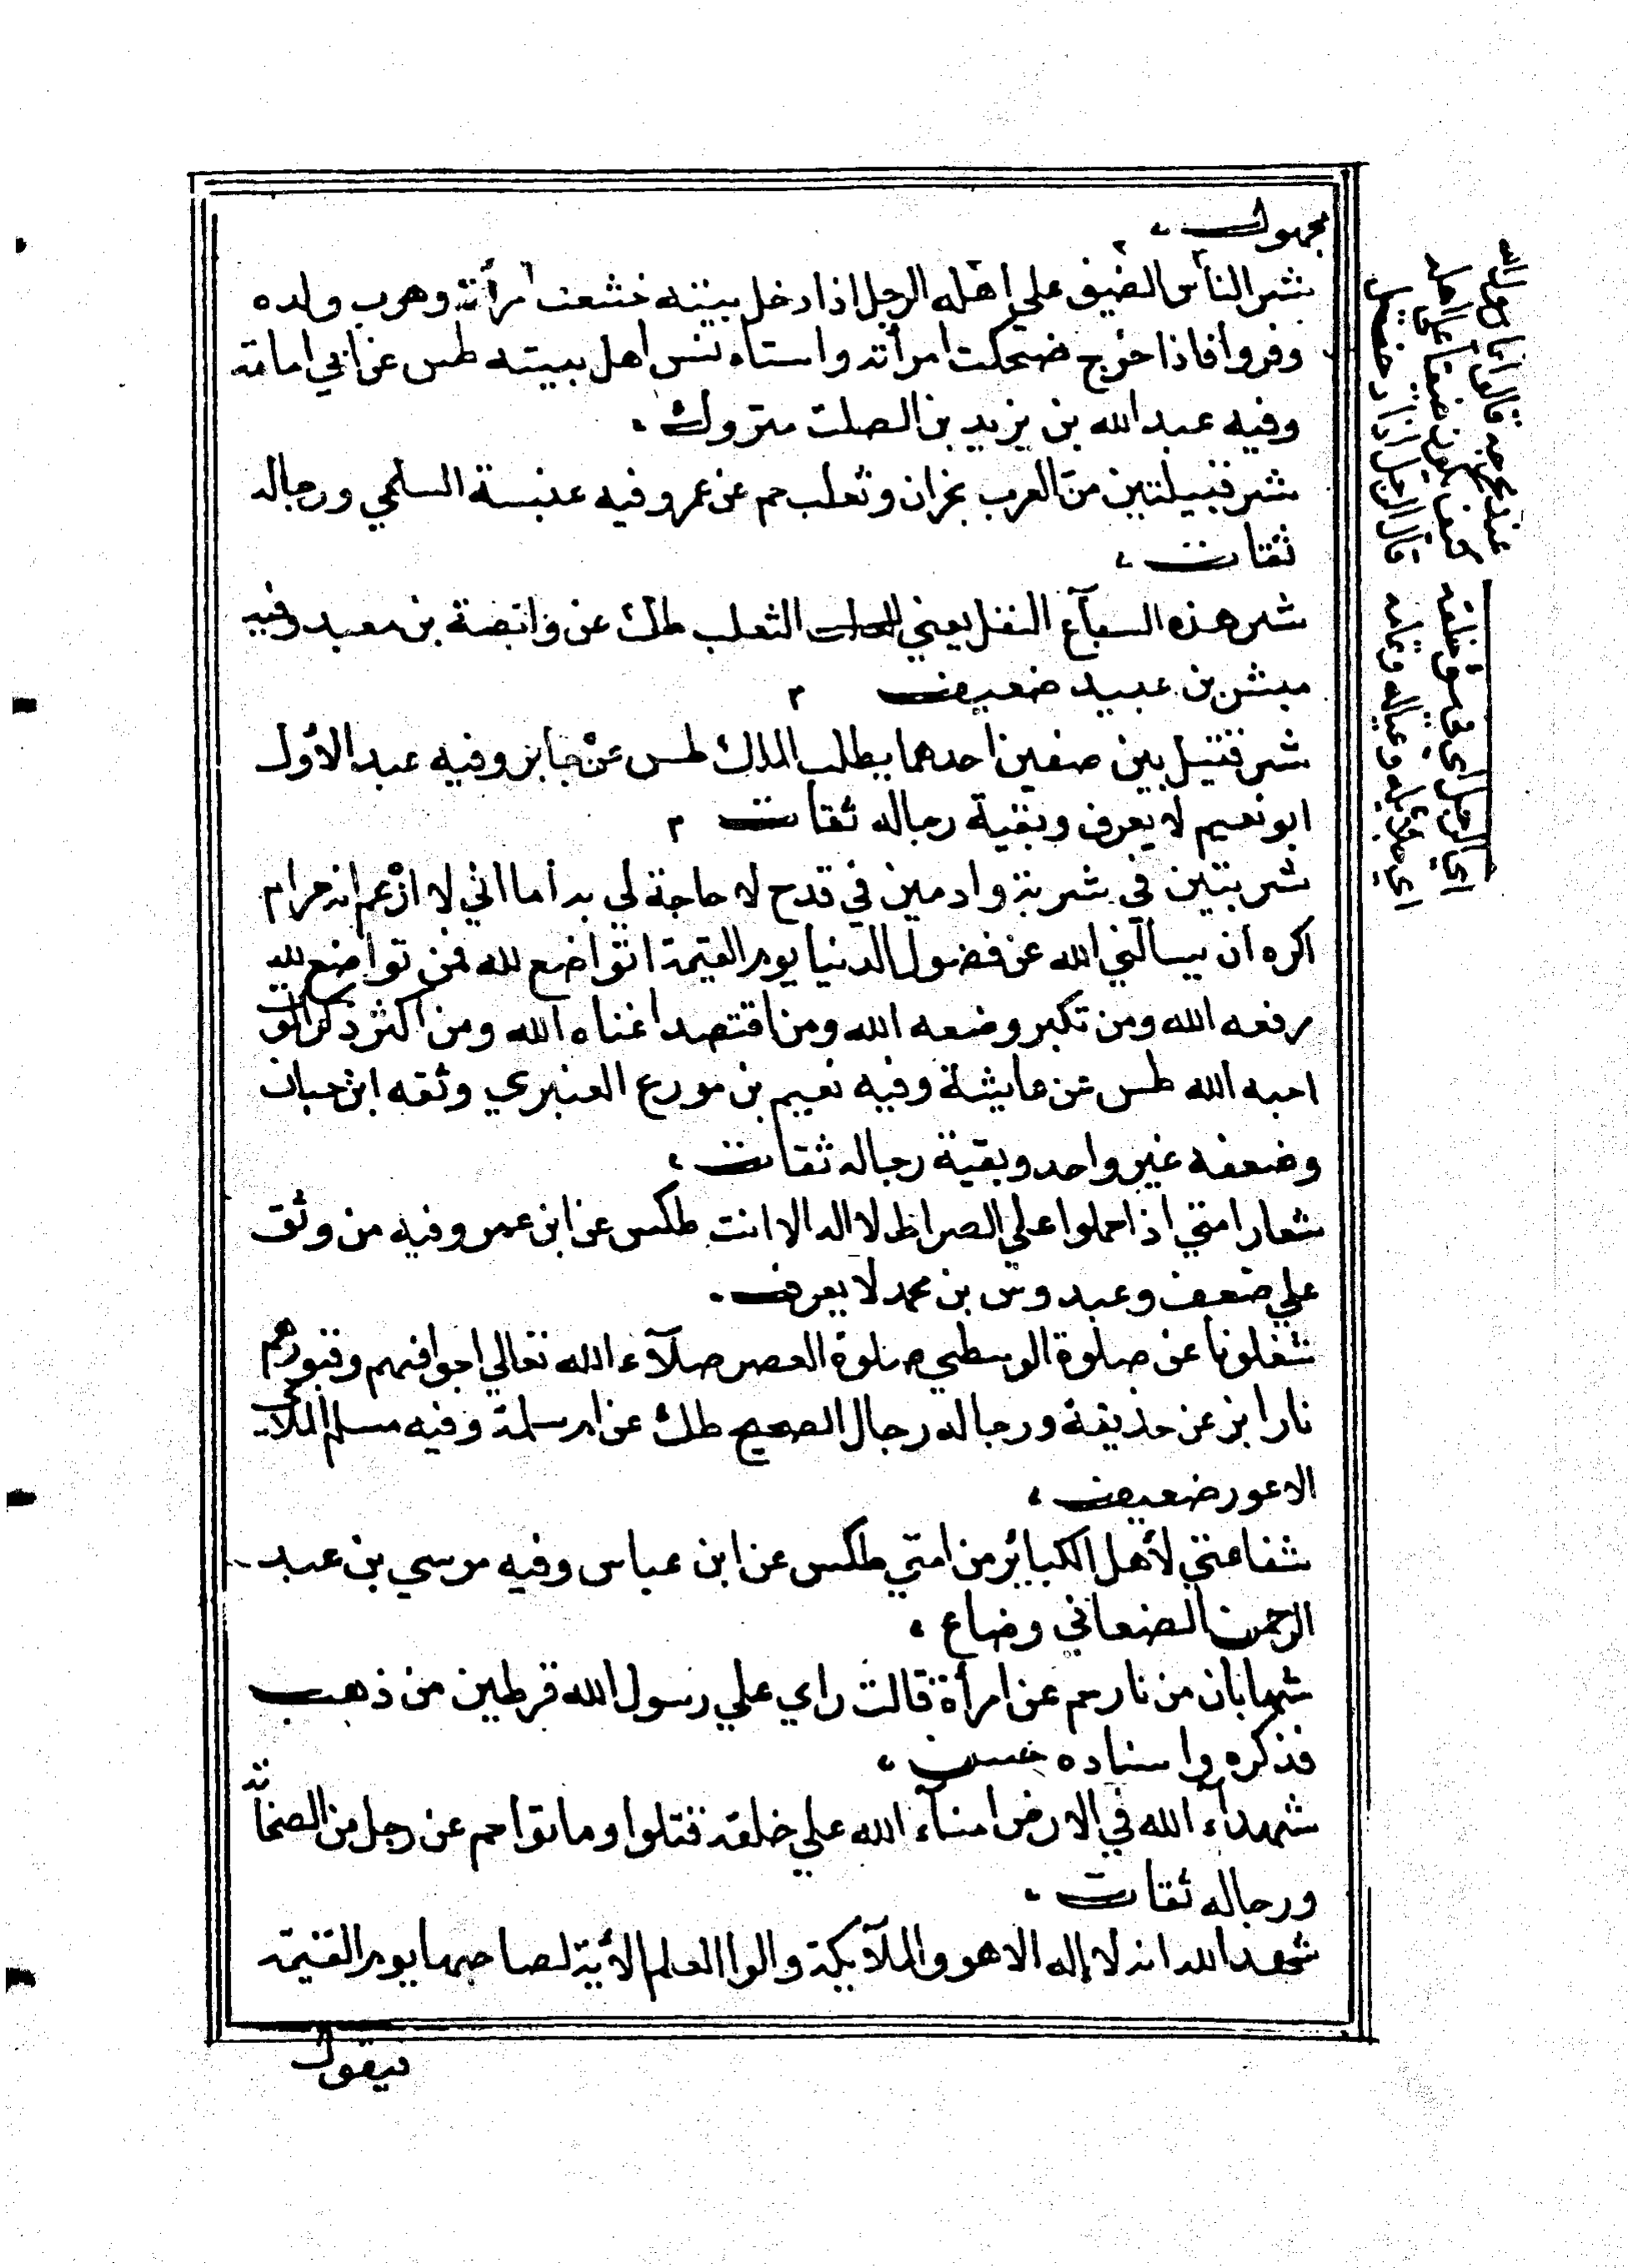 مجهول
شر الناس الضيق علي اهله الرجل اذا دخل بيته خشعت امرأته وهرب ولده
وفروا فاذا خرج ضحكت امرأته واستاه ننس اهل بيته طس عن ابي امامة
وفيه عبد الله بن يزيد بن الصلت متروك
شر قبيلتين من العرب نجران وتغلب حم عن عمرو فيه عنبسة السلمي ورجاله
ثقات
شر هذه السباع النفل يعني الثعلب طك عن وابصة بن معبد وفيه
مبشر بن عبيد ضعيف
شر قتيل بين صفين احدهما يطلب الملك طس عن جابر وفيه عبد الاول
ابو نعيم لا يعرف وبقية رجاله ثقات
شربتين في شربة وادمين في قدح لا حاجة لي به أما اني لا ازعم انه حرام
اكره ان يسالني الله عن فضول الدنيا يوم القيمة اتواضع لله فمن تواضع لله
رفعه الله ومن تكبر وضعه الله ومن اقتصد اغناه الله ومن اكثر ذكر الموت
احبه الله طس عن عايشة وفيه نعيم بن مورع العنبري وثقه ابن حبان
وضعفه غير واحد وبقية رجاله ثقات
شعار امتي اذا حملوا علي الصراط لا اله الا انت طكس عن ابن عمرو فيه من وثق
علي ضعف وعبدوس بن محمد لا يعرف
شغلونا عن صلوة الوسطي صلوة العصر ملآء الله تعالي اجوافهم وقبورهم
نارا بز عن حذيفة ورجاله رجال الصحيح طك عن ام سلمة وفيه مسلم الملائي
الاعور ضعيف
شفاعتي لأهل الكبائر من امتي طكس عن ابن عباس وفيه موسي بن عبد
الرحمن الصنعاني وضاع
شهابان من نار حم عن امرأة قالت راي علي رسول الله قرطين من ذهب
فذكره واسناده حسن
شهدآء الله في الارض امنآء الله علي خلقه قتلوا وماتوا حم عن رجل من الصحابة
ورجاله ثقات
شهد الله انه لا إله الا هو والملآيكة والوا العلم الأية لصاحبها يوم القيمة
فيقول
قالوا يا رسول الله
كيف يكون ضيقا على اهله
قال الرجل اذا دخل
اي الرجل